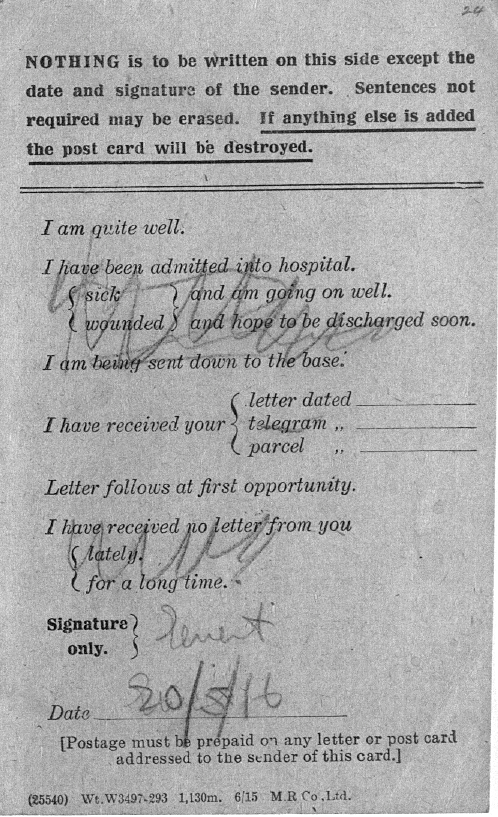 24
NOTHING is to be written on this side except the
date and signature of the sender. Sentences not
required may be erased. If anything else is added
the post card will be destroyed.
I am quite well.
I have been admitted into hospital.
{ sick } and am going on well.
{ wounded } and hope to be discharged soon.
I am being sent down to the base.
I have received your { letter dated
telegram ,,
parcel ,,
Letter follows at first opportunity.
I have received no letter from you
{ lately.
{ for a long time.
Signature }
only. }
Date 20/5/16
[Postage must be prepaid on any letter or post card
addressed to the sender of this card.]
(25540) Wt.W3497-293 1,130m. 6/15 M.R Co.,Ltd.